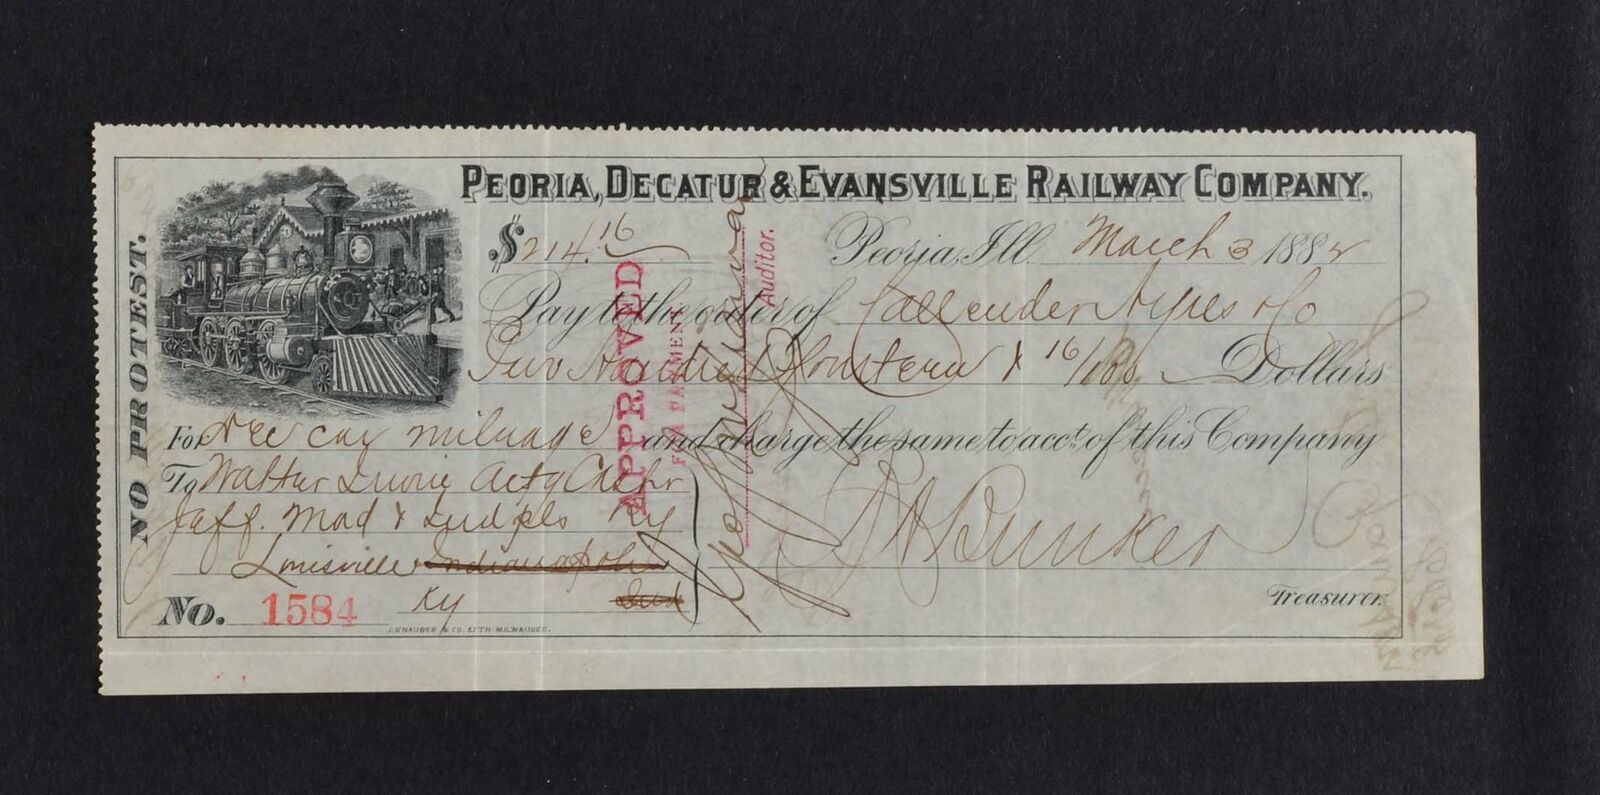 PEORIA, DECATUR & EVANSVILLE RAILWAY COMPANY.
$214.16
Peoria, Ill. March 3 1882
Pay to the order of Callender Ayres & Co
Two Hundred & fourteen & 16/100 Dollars
For Dec car mileage and charge the same to acct. of this Company
To Walter Actg Cashr
Jeff. Mad & Ind'pls Ry
Louisville Indianapolis
Ky Ind
No. 1584
Bunker
Treasurer.
NO PROTEST.
APPROVED
FOR PAYMENT
Auditor.
J. KNAUBER & CO. LITH. MILWAUKEE.